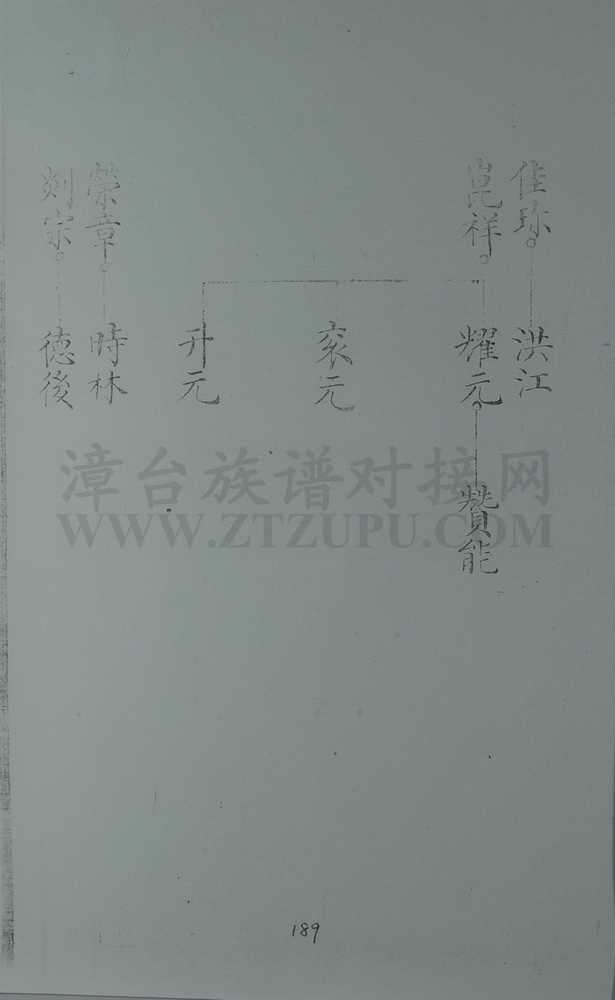 佳珎 洪江
崑祥 耀元 賛能
衮元
升元
榮章 時林
剡宗 德後
漳台族谱对接网
WWW.ZTZUPU.COM
189